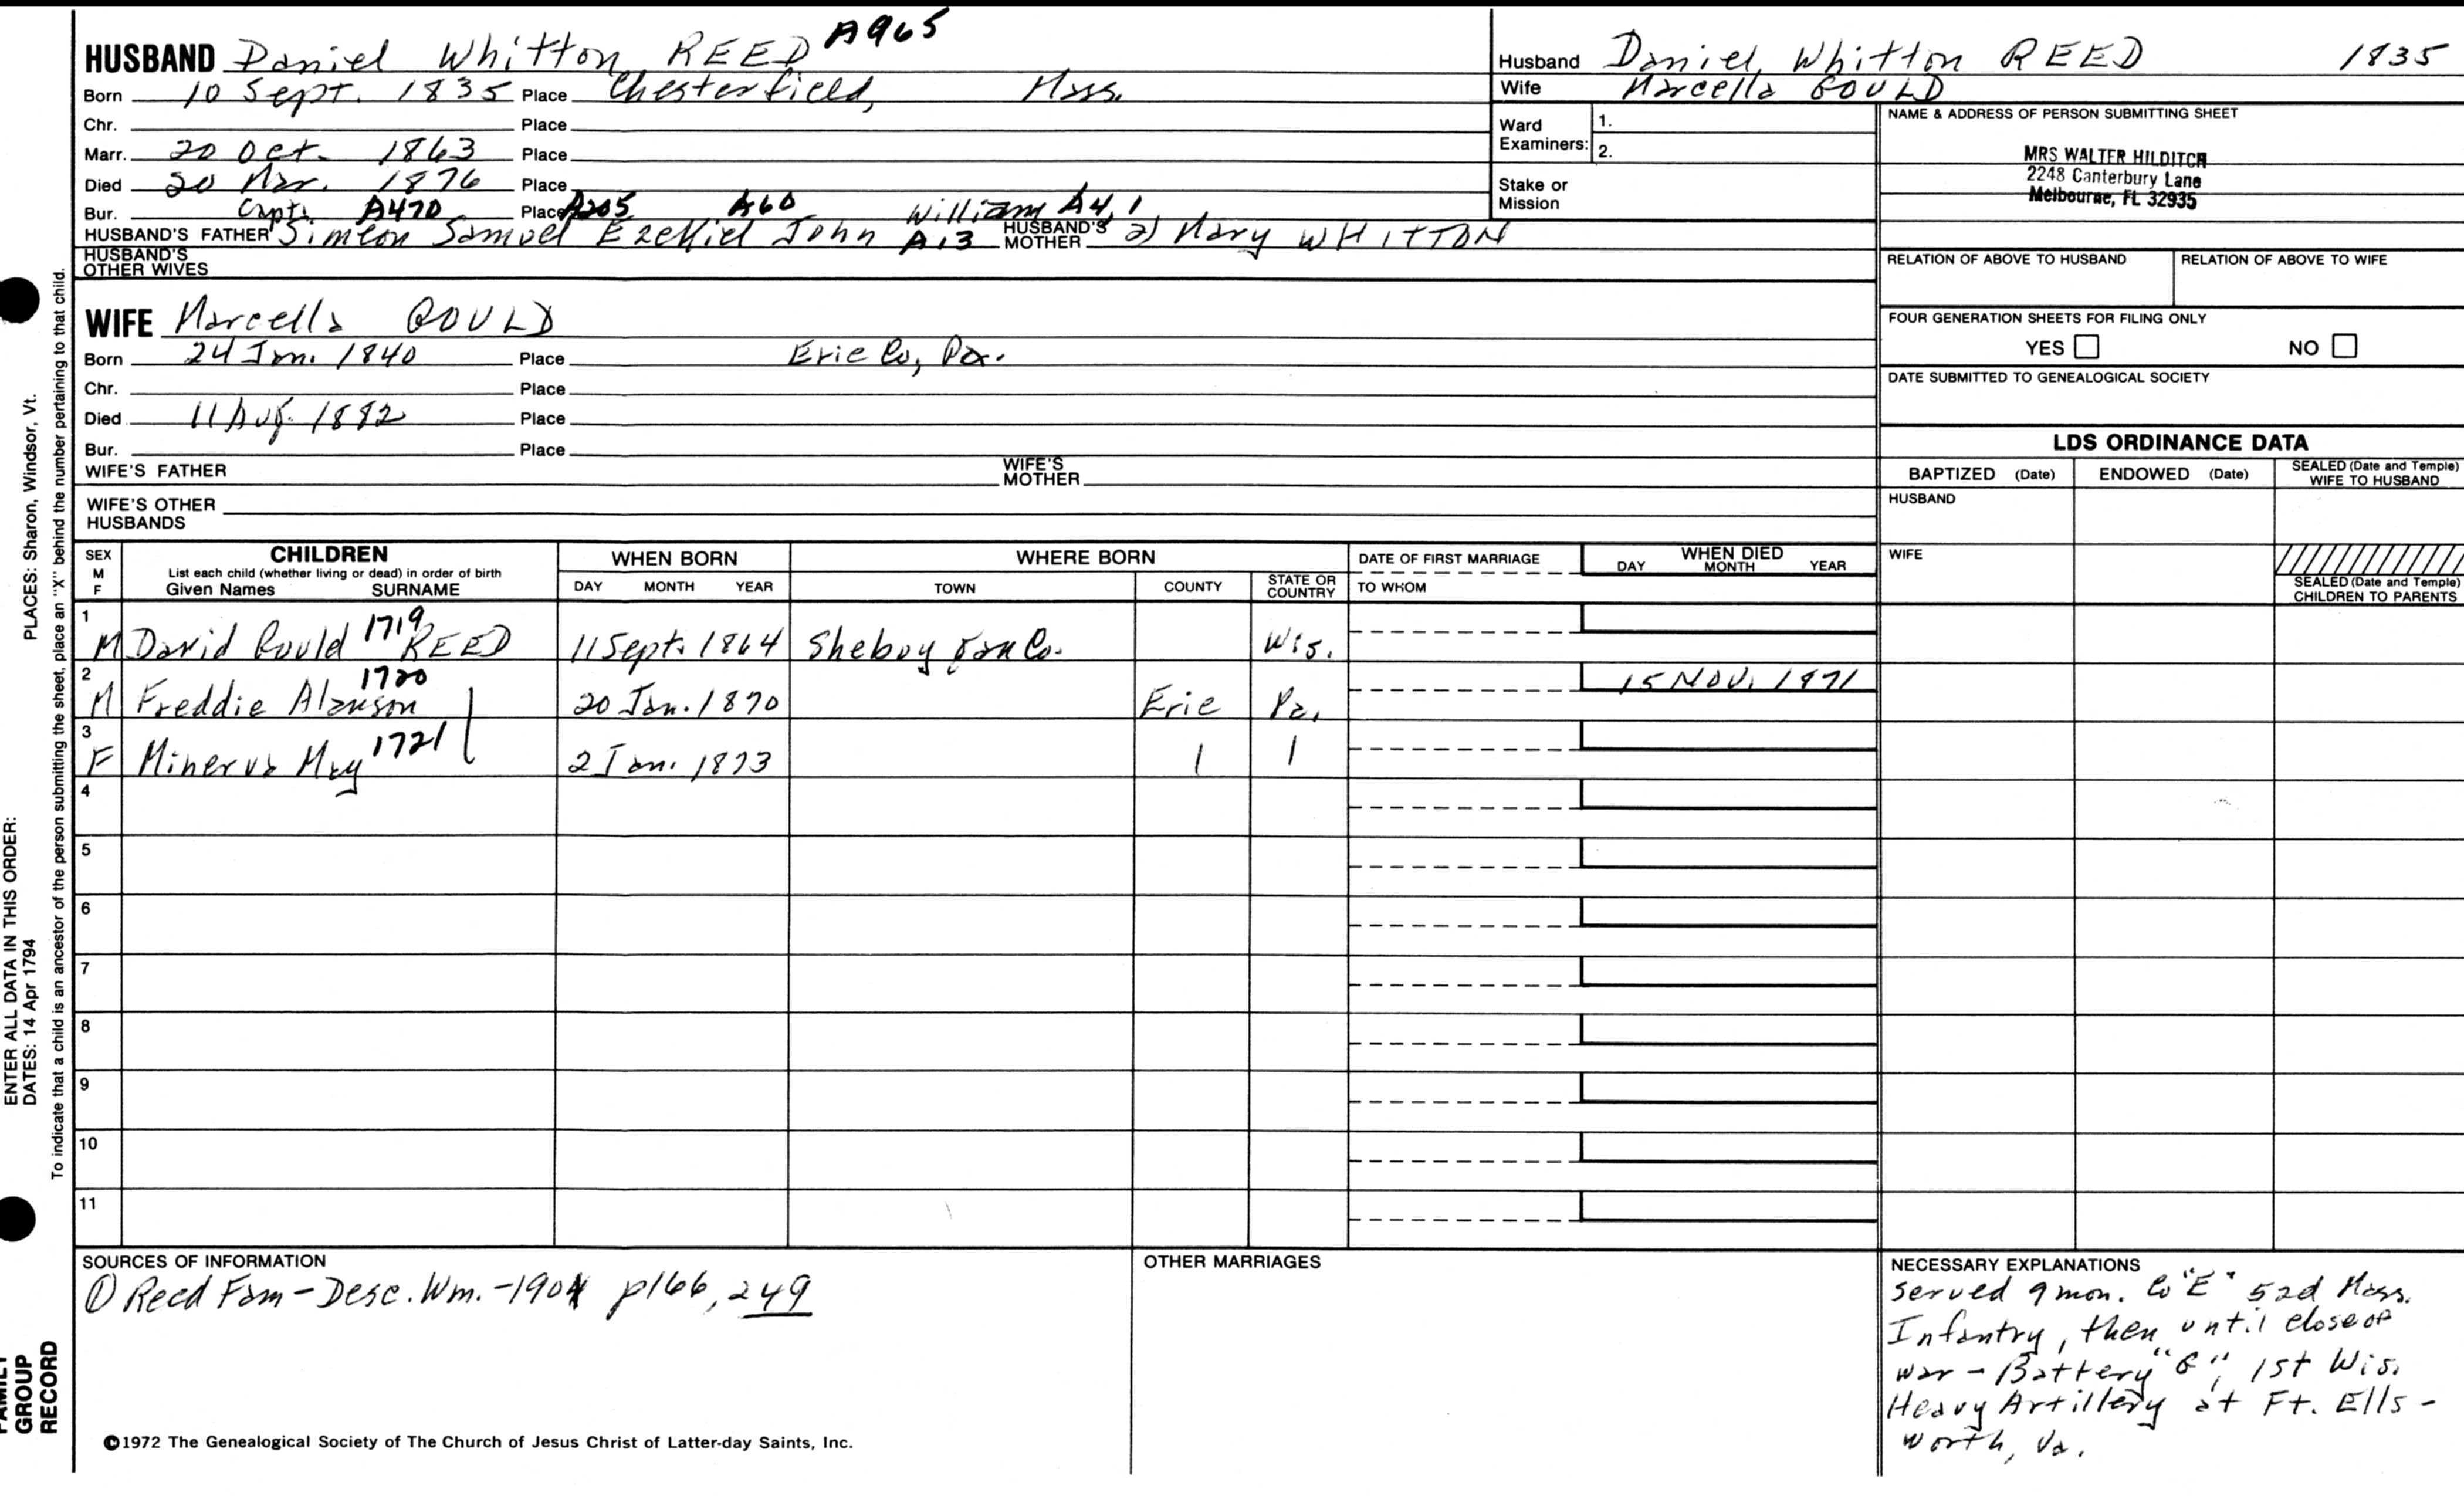 HUSBAND Daniel Whitton REED A965
Born 10 Sept. 1835 Place Chesterfield, Mass.
Chr. Place
Marr. 20 Oct. 1863 Place
Died 20 Mar. 1876 Place
Bur. Place
Capt. A470 A205 A60 William A4, 1
HUSBAND'S FATHER Simeon Samuel Ezekiel John A13 HUSBAND'S MOTHER 2) Mary WHITTON
HUSBAND'S OTHER WIVES
Husband Daniel Whitton REED 1835
Wife Marcella GOULD
Ward Examiners: 1.
2.
Stake or Mission
NAME & ADDRESS OF PERSON SUBMITTING SHEET
MRS WALTER HILDITCH
2248 Canterbury Lane
Melbourne, FL 32935
RELATION OF ABOVE TO HUSBAND RELATION OF ABOVE TO WIFE
FOUR GENERATION SHEETS FOR FILING ONLY
YES NO
DATE SUBMITTED TO GENEALOGICAL SOCIETY
WIFE Marcella GOULD
Born 24 Jan. 1840 Place Erie Co, Pa.
Chr. Place
Died 11 Aug. 1882 Place
Bur. Place
WIFE'S FATHER WIFE'S MOTHER
WIFE'S OTHER HUSBANDS
LDS ORDINANCE DATA
BAPTIZED (Date) ENDOWED (Date) SEALED (Date and Temple) WIFE TO HUSBAND
HUSBAND
WIFE
SEALED (Date and Temple) CHILDREN TO PARENTS
SEX M F
CHILDREN
List each child (whether living or dead) in order of birth
Given Names SURNAME
WHEN BORN
DAY MONTH YEAR
WHERE BORN
TOWN COUNTY STATE OR COUNTRY
DATE OF FIRST MARRIAGE
TO WHOM
WHEN DIED
DAY MONTH YEAR
1 M David Gould 1719 REED 11 Sept. 1864 Sheboygan Co. Wis.
2 M Freddie Alanson 1720 20 Jan. 1870 Erie Pa. 15 NOV. 1871
3 F Minerva May 1721 2 Jan. 1873
4
5
6
7
8
9
10
11
SOURCES OF INFORMATION
① Reed Fam - Desc. Wm. - 1901 p166, 249
OTHER MARRIAGES
NECESSARY EXPLANATIONS
served 9 mon. Co "E" 52d Mass.
Infantry, then until close of
war - Battery "G", 1st Wis.
Heavy Artillery at Ft. Ells-
worth, Va.
©1972 The Genealogical Society of The Church of Jesus Christ of Latter-day Saints, Inc.
PLACES: Sharon, Windsor, Vt.
ENTER ALL DATA IN THIS ORDER:
DATES: 14 Apr 1794
To indicate that a child is an ancestor of the person submitting the sheet, place an "X" behind the number pertaining to that child.
FAMILY
GROUP
RECORD